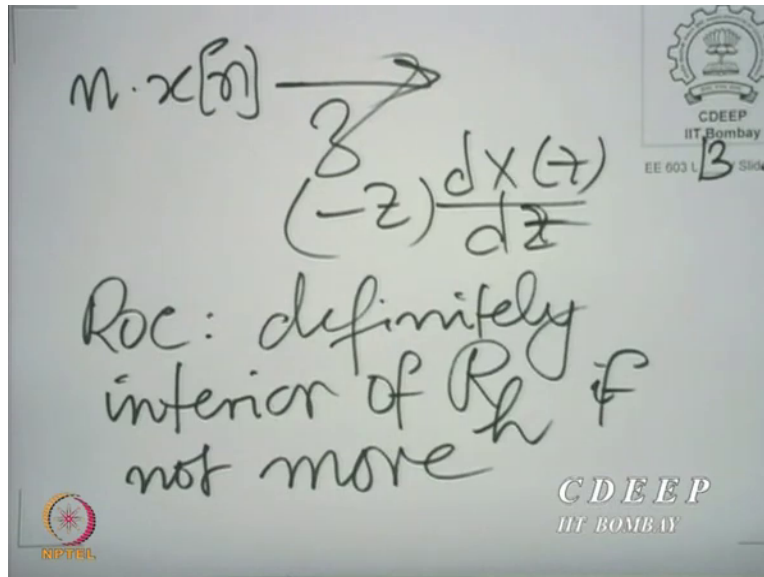 n·x[n] →
CDEEP
IIT Bombay
EE 603 L 13 / Slid
Z
(-z) dX(z)/dz
ROC: definitely
interior of R_h if
not more
CDEEP
IIT BOMBAY
NPTEL